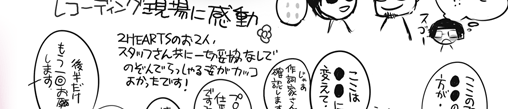 レコーディング現場に感動
2HEARTSのお2人、
スタッフさん共に一切妥協なしで
のぞんでらっしゃる姿がカッコ
よかったです!
スゴー
後半だけ
もう一回お願
します
じゃあ
作詞家さん
確認しま
プロ
仕事
です
ここは
●●に
変えて
ここの
●●の
方が…